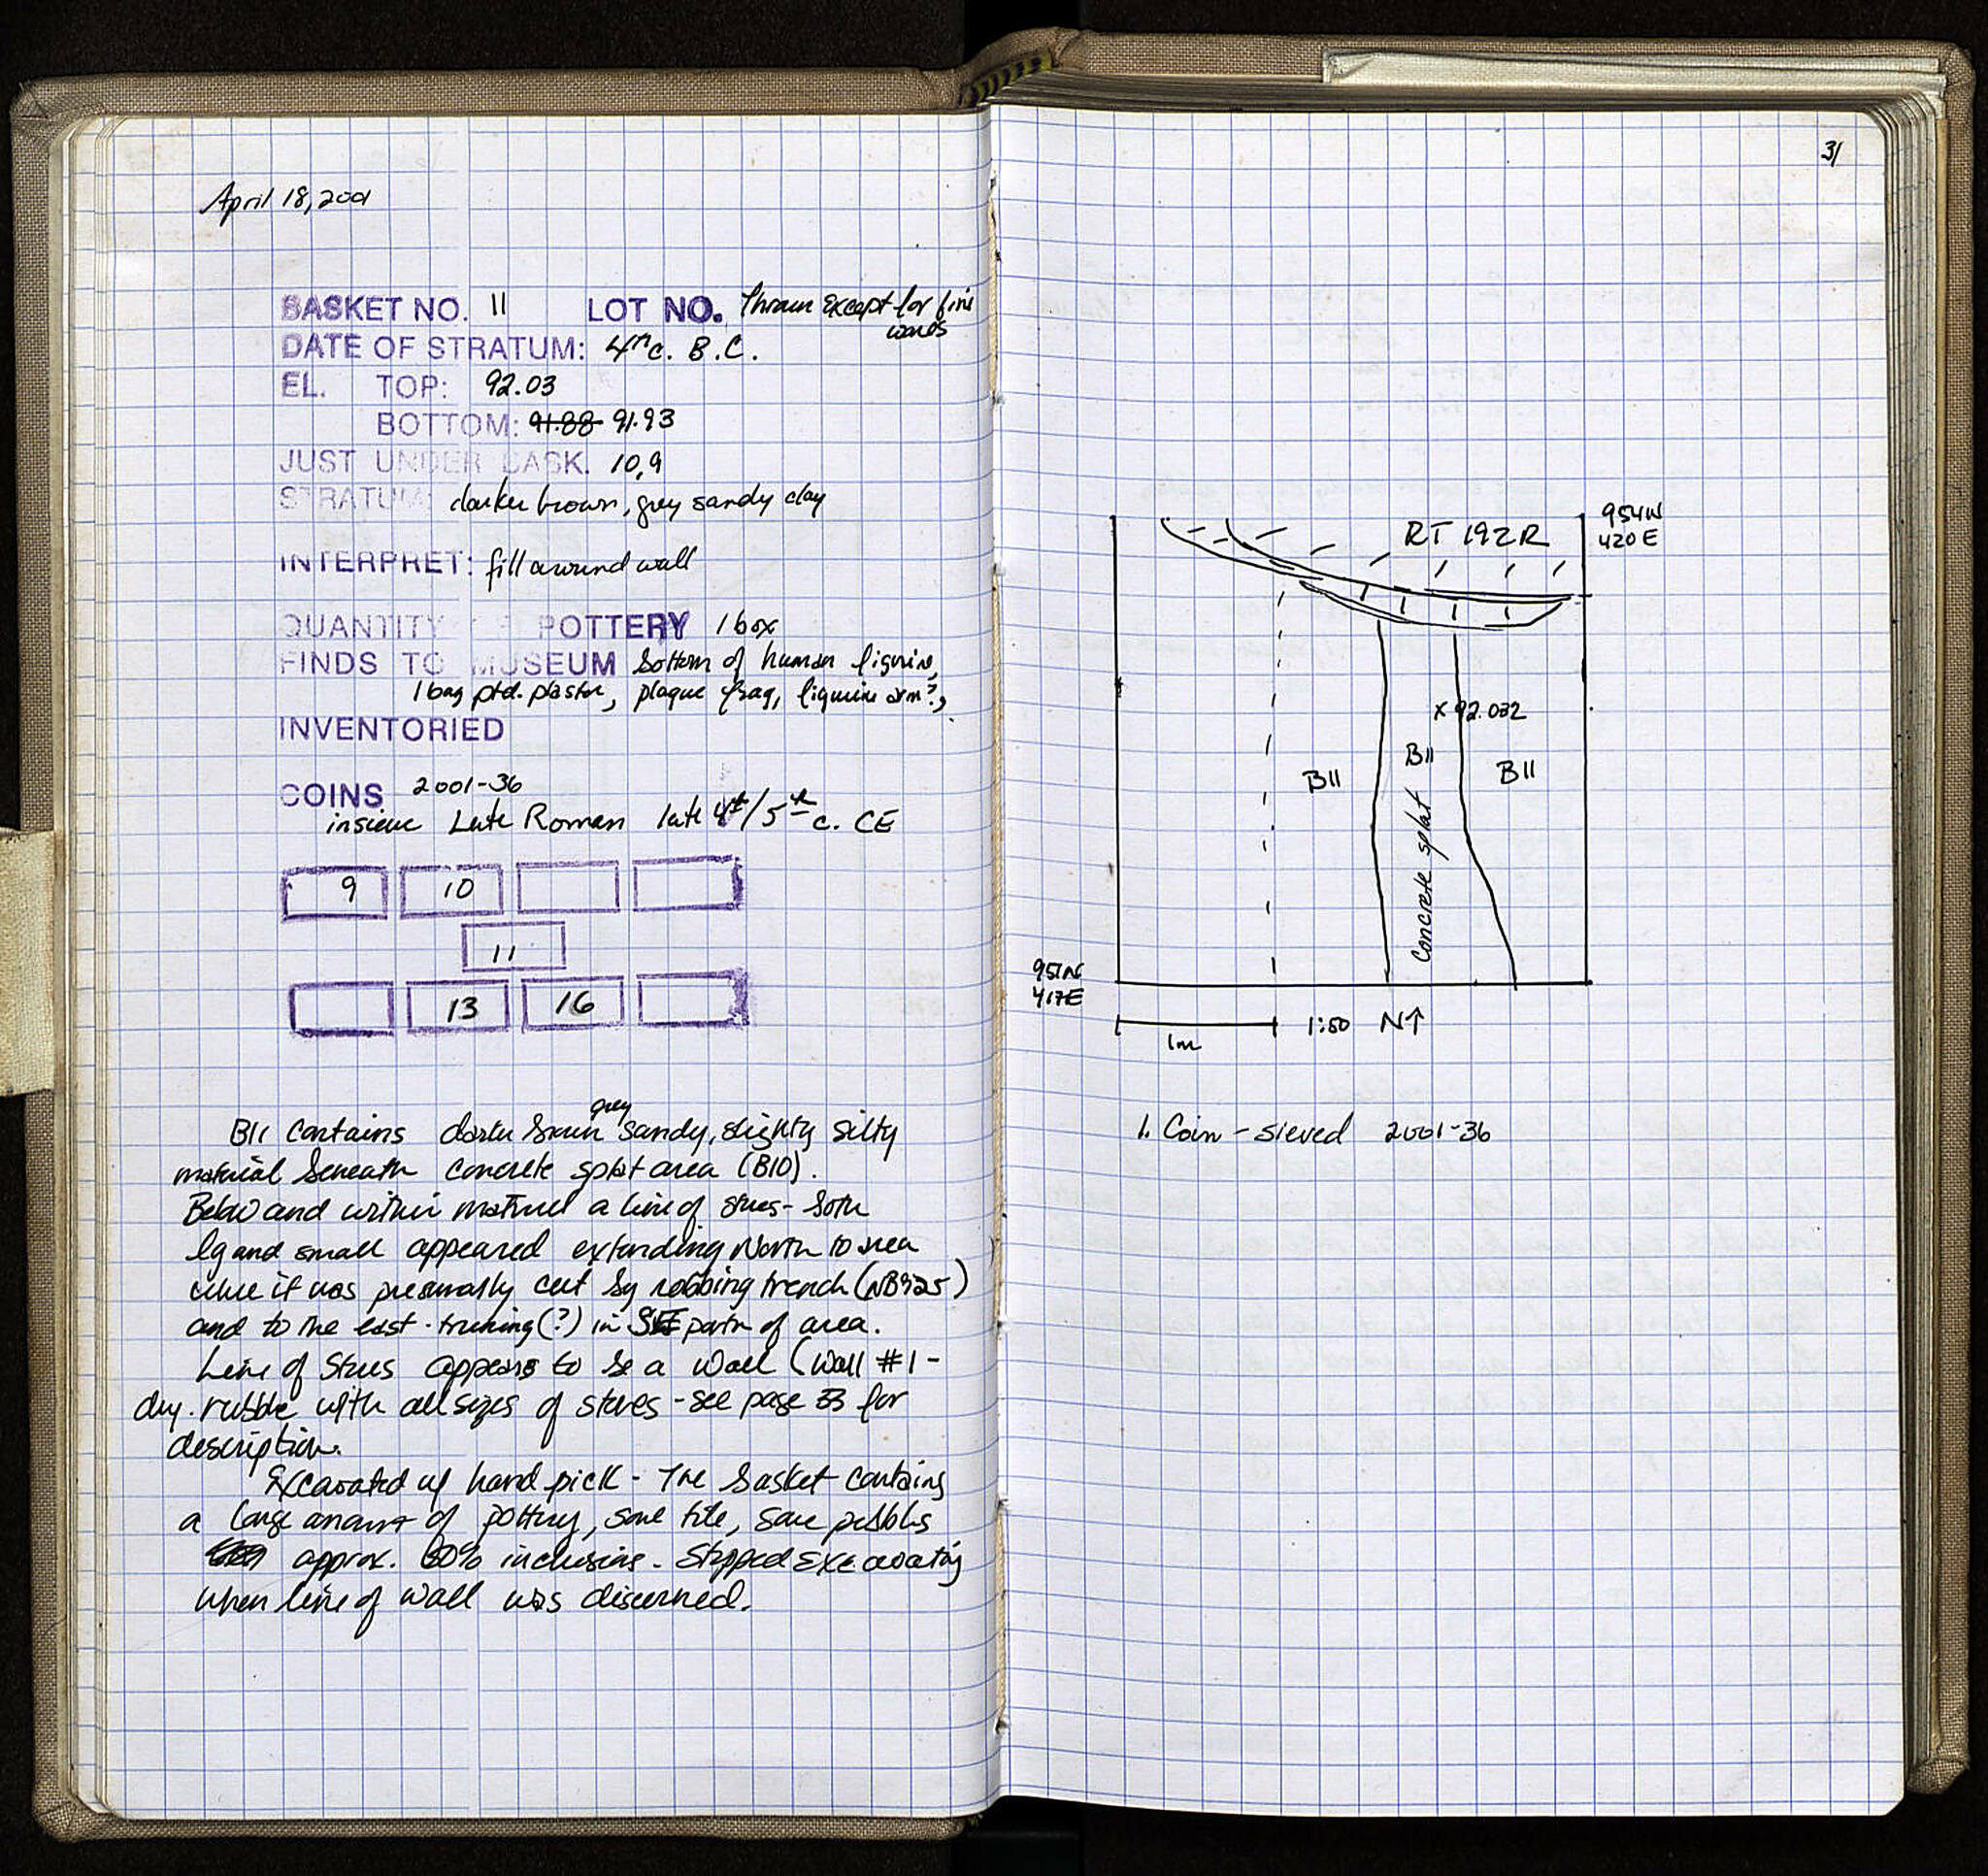 April 18, 2001
BASKET NO. 11 LOT NO. Thrown except for fine
wares
DATE OF STRATUM: 4th c. B.C.
EL. TOP: 92.03
BOTTOM: 91.88 91.93
JUST UNDER BASK. 10,9
STRATUM: darker brown, grey sandy clay
INTERPRET: fill around wall
QUANTITY OF POTTERY 1 box
FINDS TO MUSEUM bottom of human figurine,
1 bag ptd. plaster, plaque frag, figurine arm?,
INVENTORIED
COINS 2001-36
Late Roman late 4th/5th c. CE
9 10
11
13 16
grey
B11 contains darker brown sandy, slightly silty
material beneath concrete splat area (B10).
Below and within material a line of stones - both
lg and small appeared extending North to area
where it was presumably cut by robbing trench (NB925)
and to the east - turning (?) in SE part of area.
Line of stones appears to be a wall (wall #1 -
dry rubble with all sizes of stones - see page 33 for
description.
Excavated w/ hand pick - The basket contains
a large amount of pottery, some tile, some pebbles
approx. 60% inclusions - Stopped excavating
when line of wall was discerned.
31
954N
420E
RT 192R
x 92.032
B11
B11
B11
Concrete splat
951N
417E
1m
1:50 N↑
1. Coin - sieved 2001-36